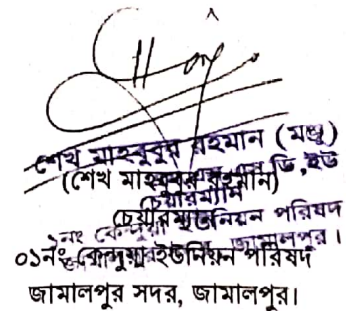 শেখ মাহবুবুর রহমান (মঞ্জু)
(শেখ মাহবুবুর রহমান)
চেয়ারম্যান
চেয়ারম্যান
ইউনিয়ন পরিষদ
১নং কেন্দুয়া
জামালপুর।
০১নং কেন্দুয়া ইউনিয়ন পরিষদ
জামালপুর সদর, জামালপুর।